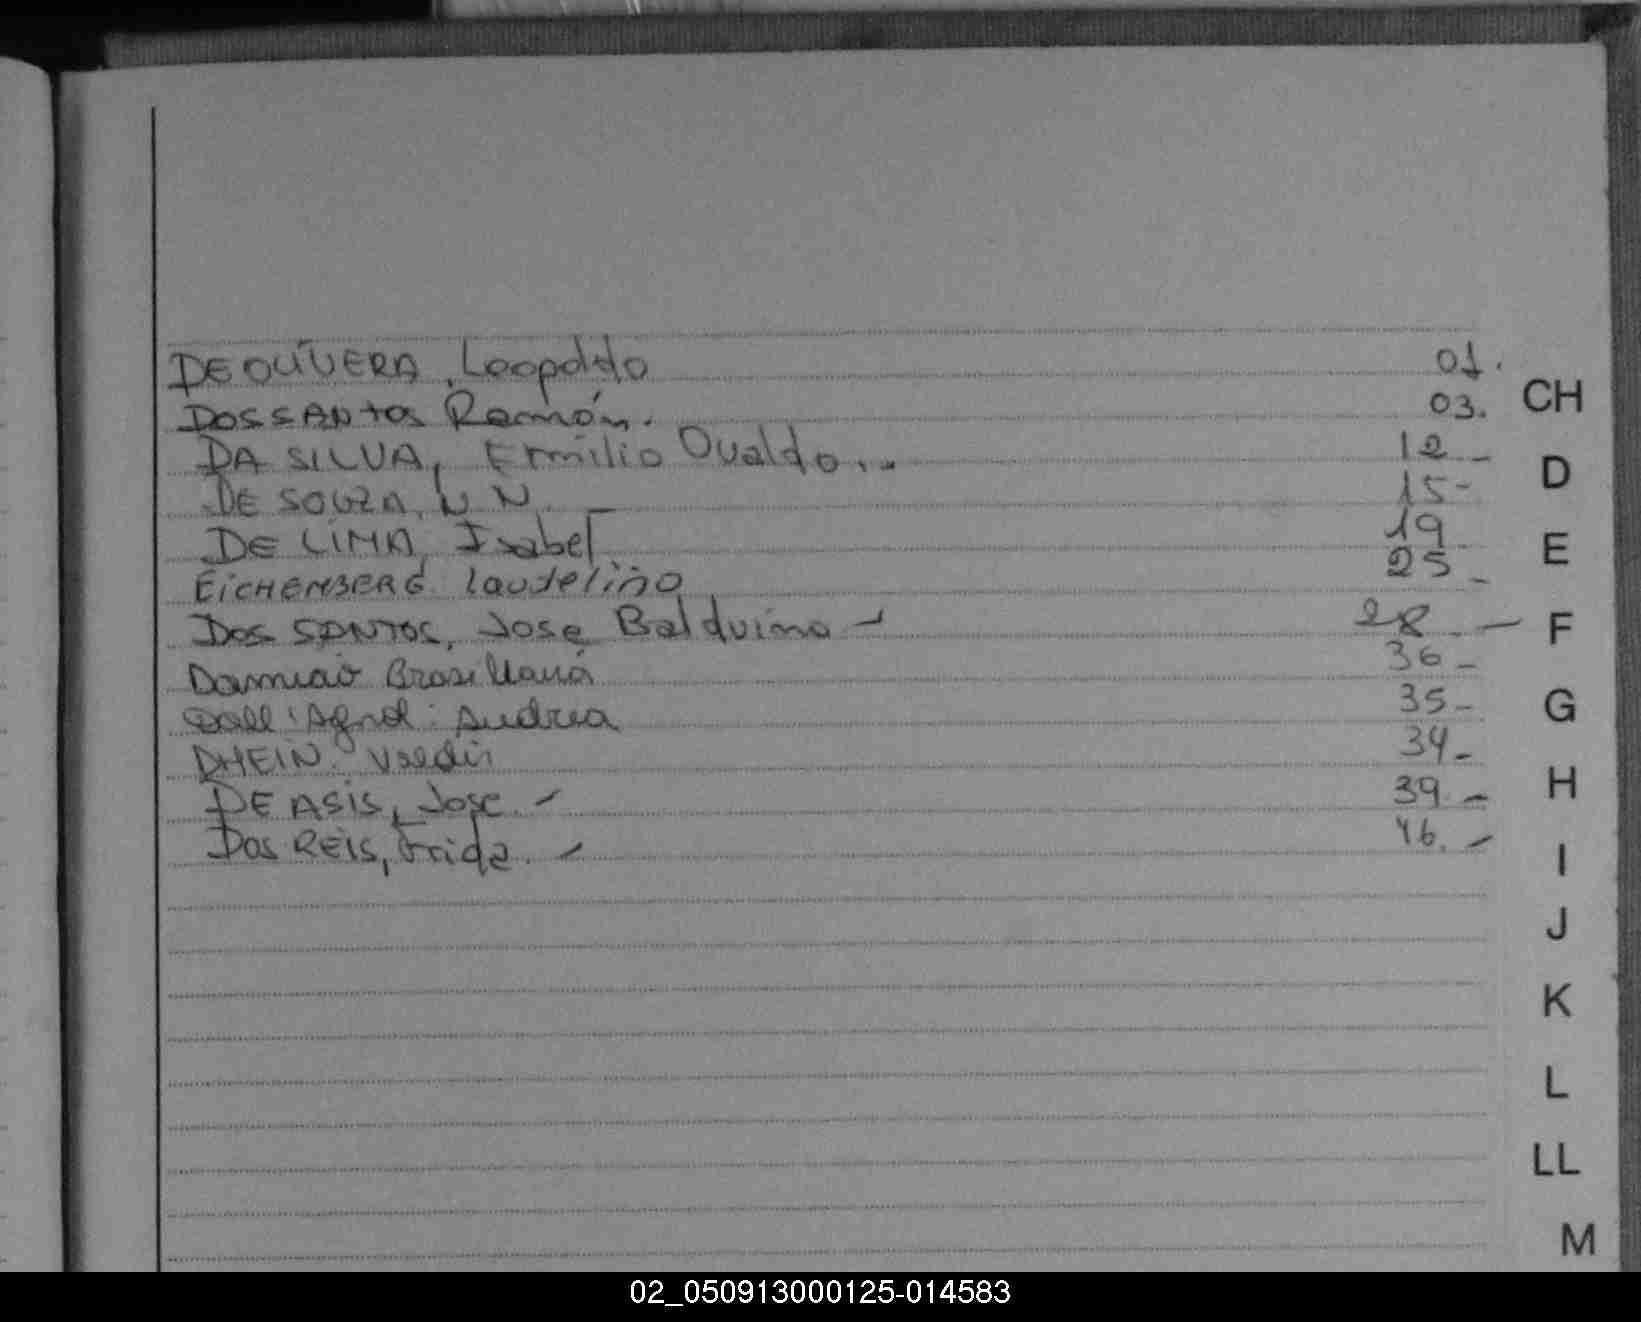 DE OLIVERA, Leopoldo 01.
DOS SANtos Ramón. 03.
DA SILVA, Emilio Ovaldo.. 12 -
DE SOUZA, N N. - 15-
DE LIMA, Isabel 19
EICHEMBERG. Laudelino 25 -
Dos SANTOS, Jose Balduino - 28 -
Damiao Brasiliana 36 -
Dall'Agnol. Andrea 35 -
DHEIN. Valdir 34 -
DE ASIS, Jose. - 39 -
Dos REIS, Frida. - 46. -
CH
D
E
F
G
H
I
J
K
L
LL
M
02_050913000125-014583